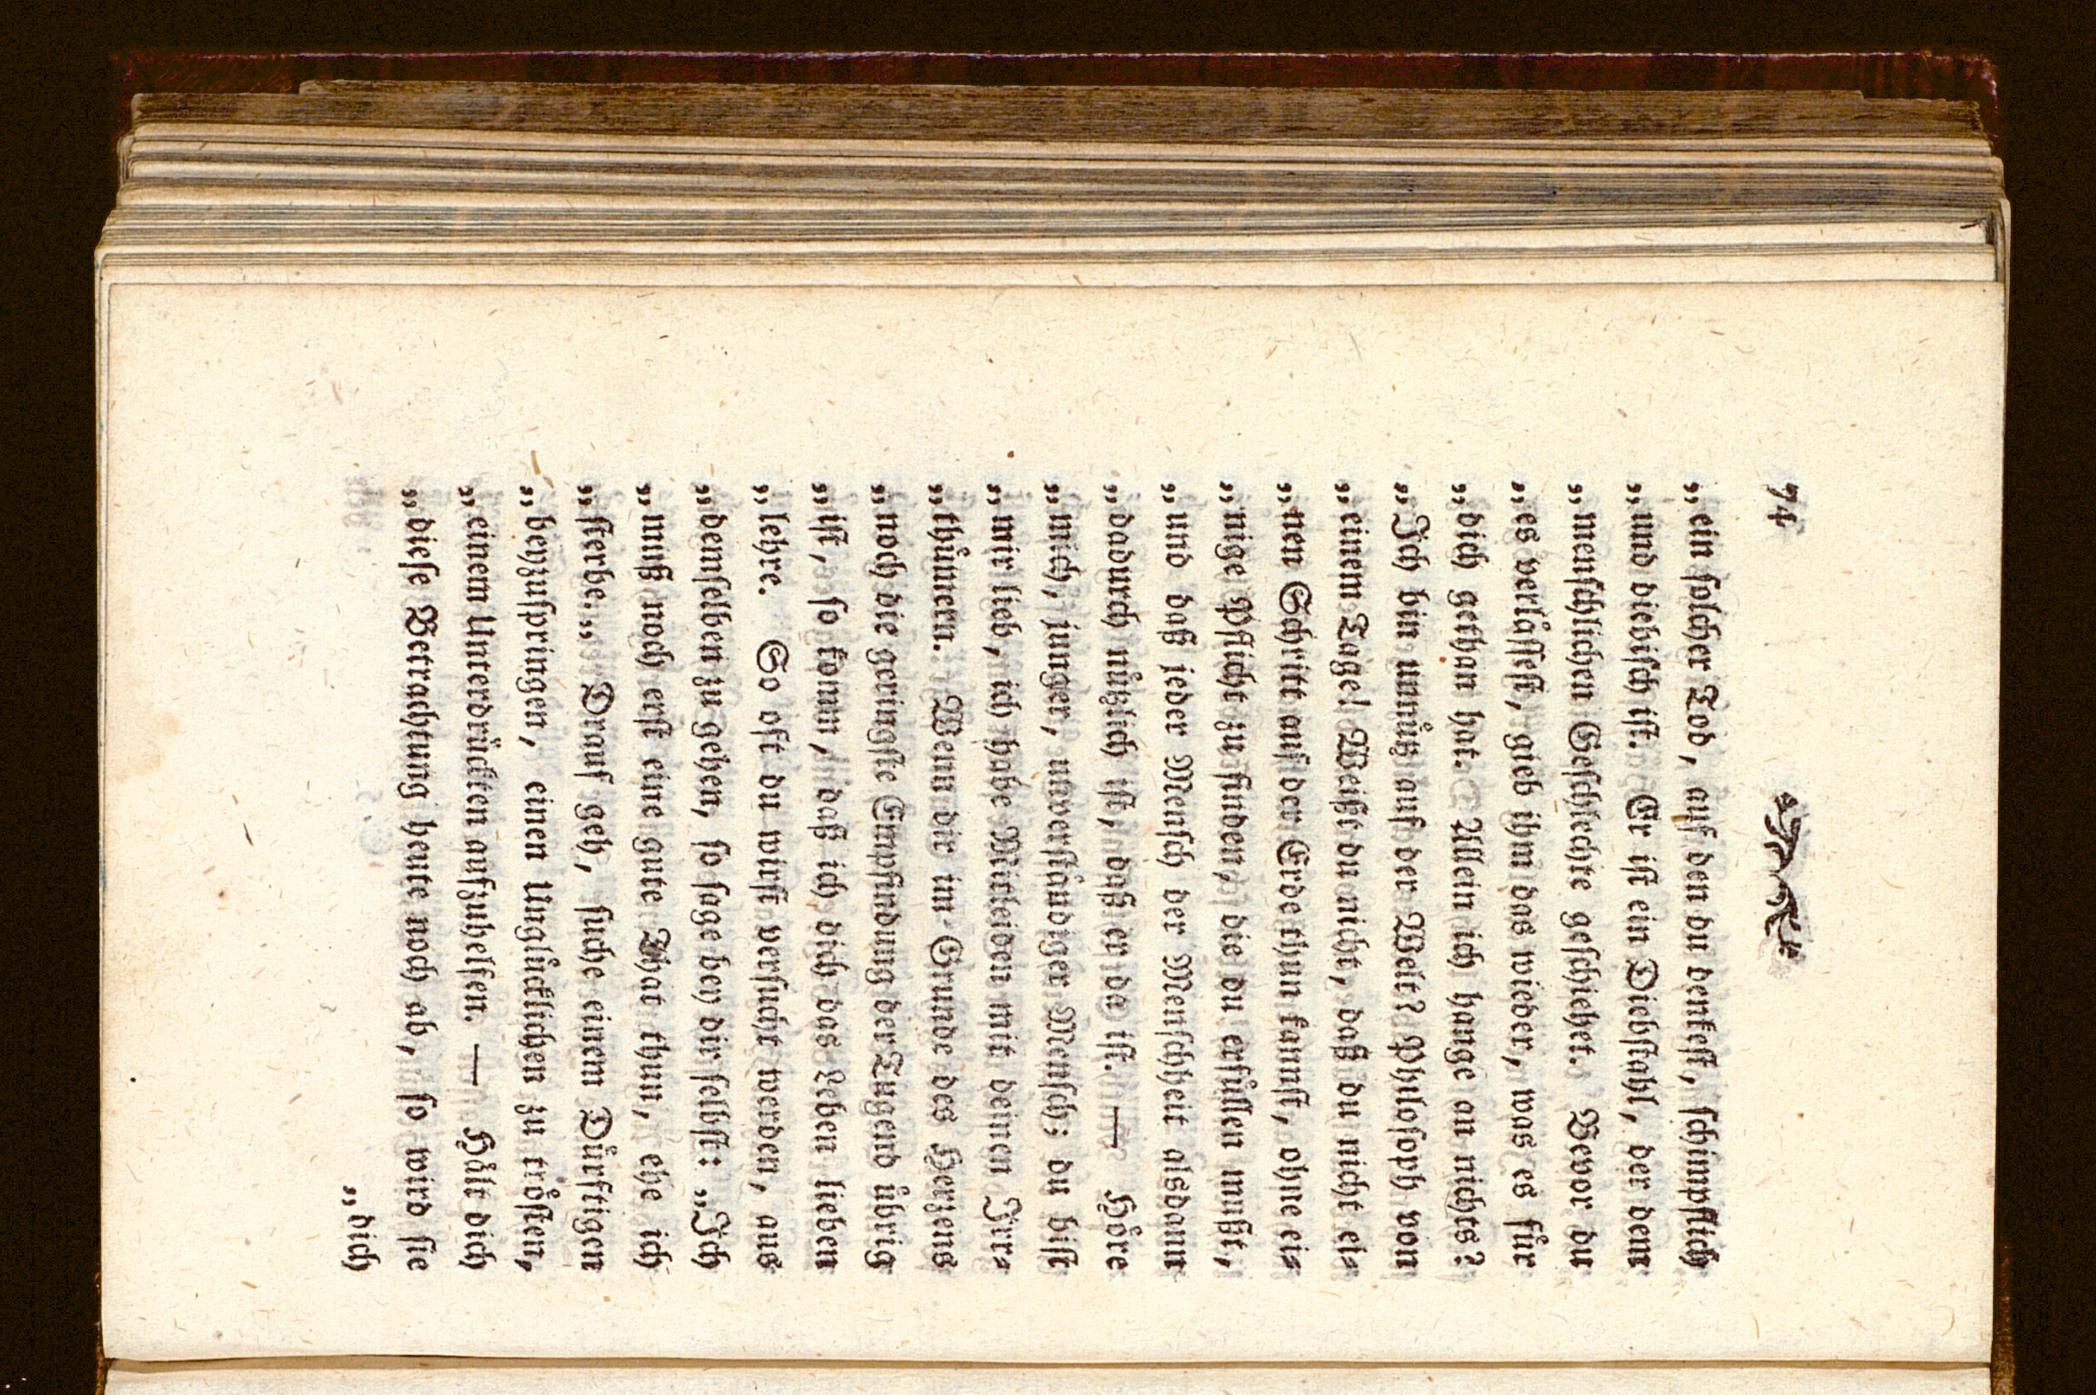 74
„ein solcher Tod, auf den du denkest, schimpflich
„und diebisch ist. Er ist ein Diebstahl, der dem
„menschlichen Geschlechte geschiehet. Bevor du
„es verlåssest, gieb ihm das wieder, was es fůr
„dich gethan hat. Allein ich hange an nichts?
„Ich bin unnůtz auf der Welt? Philosoph von
„einem Tage! Weißt du nicht, daß du nicht ei-
„nen Schritt auf der Erde thun kannst, ohne ei-
„nige Pflicht zu finden, die du erfůllen mußt,
„und daß jeder Mensch der Menschheit alsdann
„dadurch nůtzlich ist, daß er da ist. — Hőre
„mich, junger, unverståndiger Mensch; du bist
„mir lieb, ich habe Mitleiden mit deinen Irr-
„thůmern. Wenn dir im Grunde des Herzens
„noch die geringste Empfindung der Tugend ůbrig
„ist, so komm, daß ich dich das Leben lieben
„lehre. So oft du wirst versucht werden, aus
„demselben zu gehen, so sage bey dir selbst: „Ich
„muß noch erst eine gute That thun, ehe ich
„sterbe.„ Drauf geh, suche einem Důrftigen
„beyzuspringen, einen Unglůcklichen zu trősten,
„einem Unterdrůckten aufzuhelfen. — Hålt dich
„diese Betrachtung heute noch ab, so wird sie
„dich